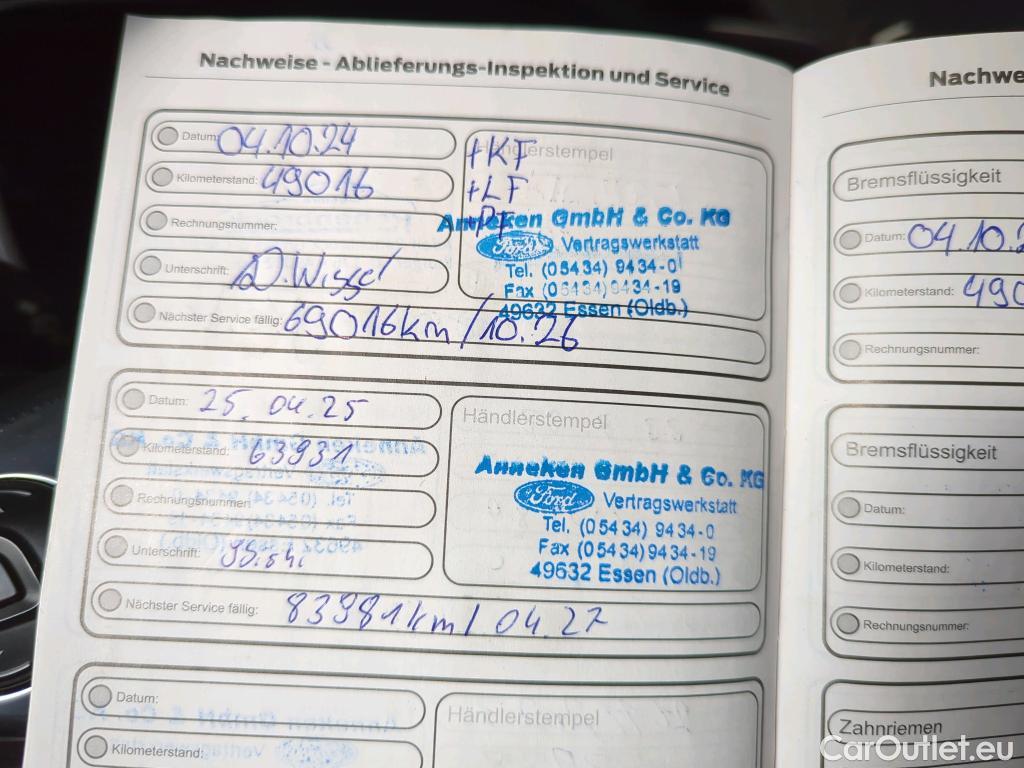 Nachweise - Ablieferungs-Inspektion und Service
Datum: 04.10.24
Kilometerstand: 49016
Rechnungsnummer:
Unterschrift:
Nächster Service fällig: 69016km/10.26
Händlerstempel
+KF
+LF
+PF
Anneken GmbH & Co. KG
Ford Vertragswerkstatt
Tel. (05434) 9434-0
Fax (05434) 9434-19
49632 Essen (Oldb.)
Datum: 25.04.25
Kilometerstand: 63931
Rechnungsnummer:
Unterschrift:
Nächster Service fällig: 83981km/04.27
Händlerstempel
Anneken GmbH & Co. KG
Ford Vertragswerkstatt
Tel. (05434) 9434-0
Fax (05434) 9434-19
49632 Essen (Oldb.)
Datum:
Kilometerstand:
Händlerstempel
Nachwe
Bremsflüssigkeit
Datum: 04.10.2
Kilometerstand: 490
Rechnungsnummer:
Bremsflüssigkeit
Datum:
Kilometerstand:
Rechnungsnummer:
Zahnriemen
CarOutlet.eu